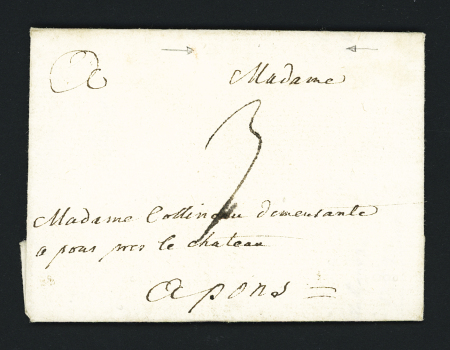 A Madame
3
Madame Collineau demeurante
a pons pres le chateau
A pons